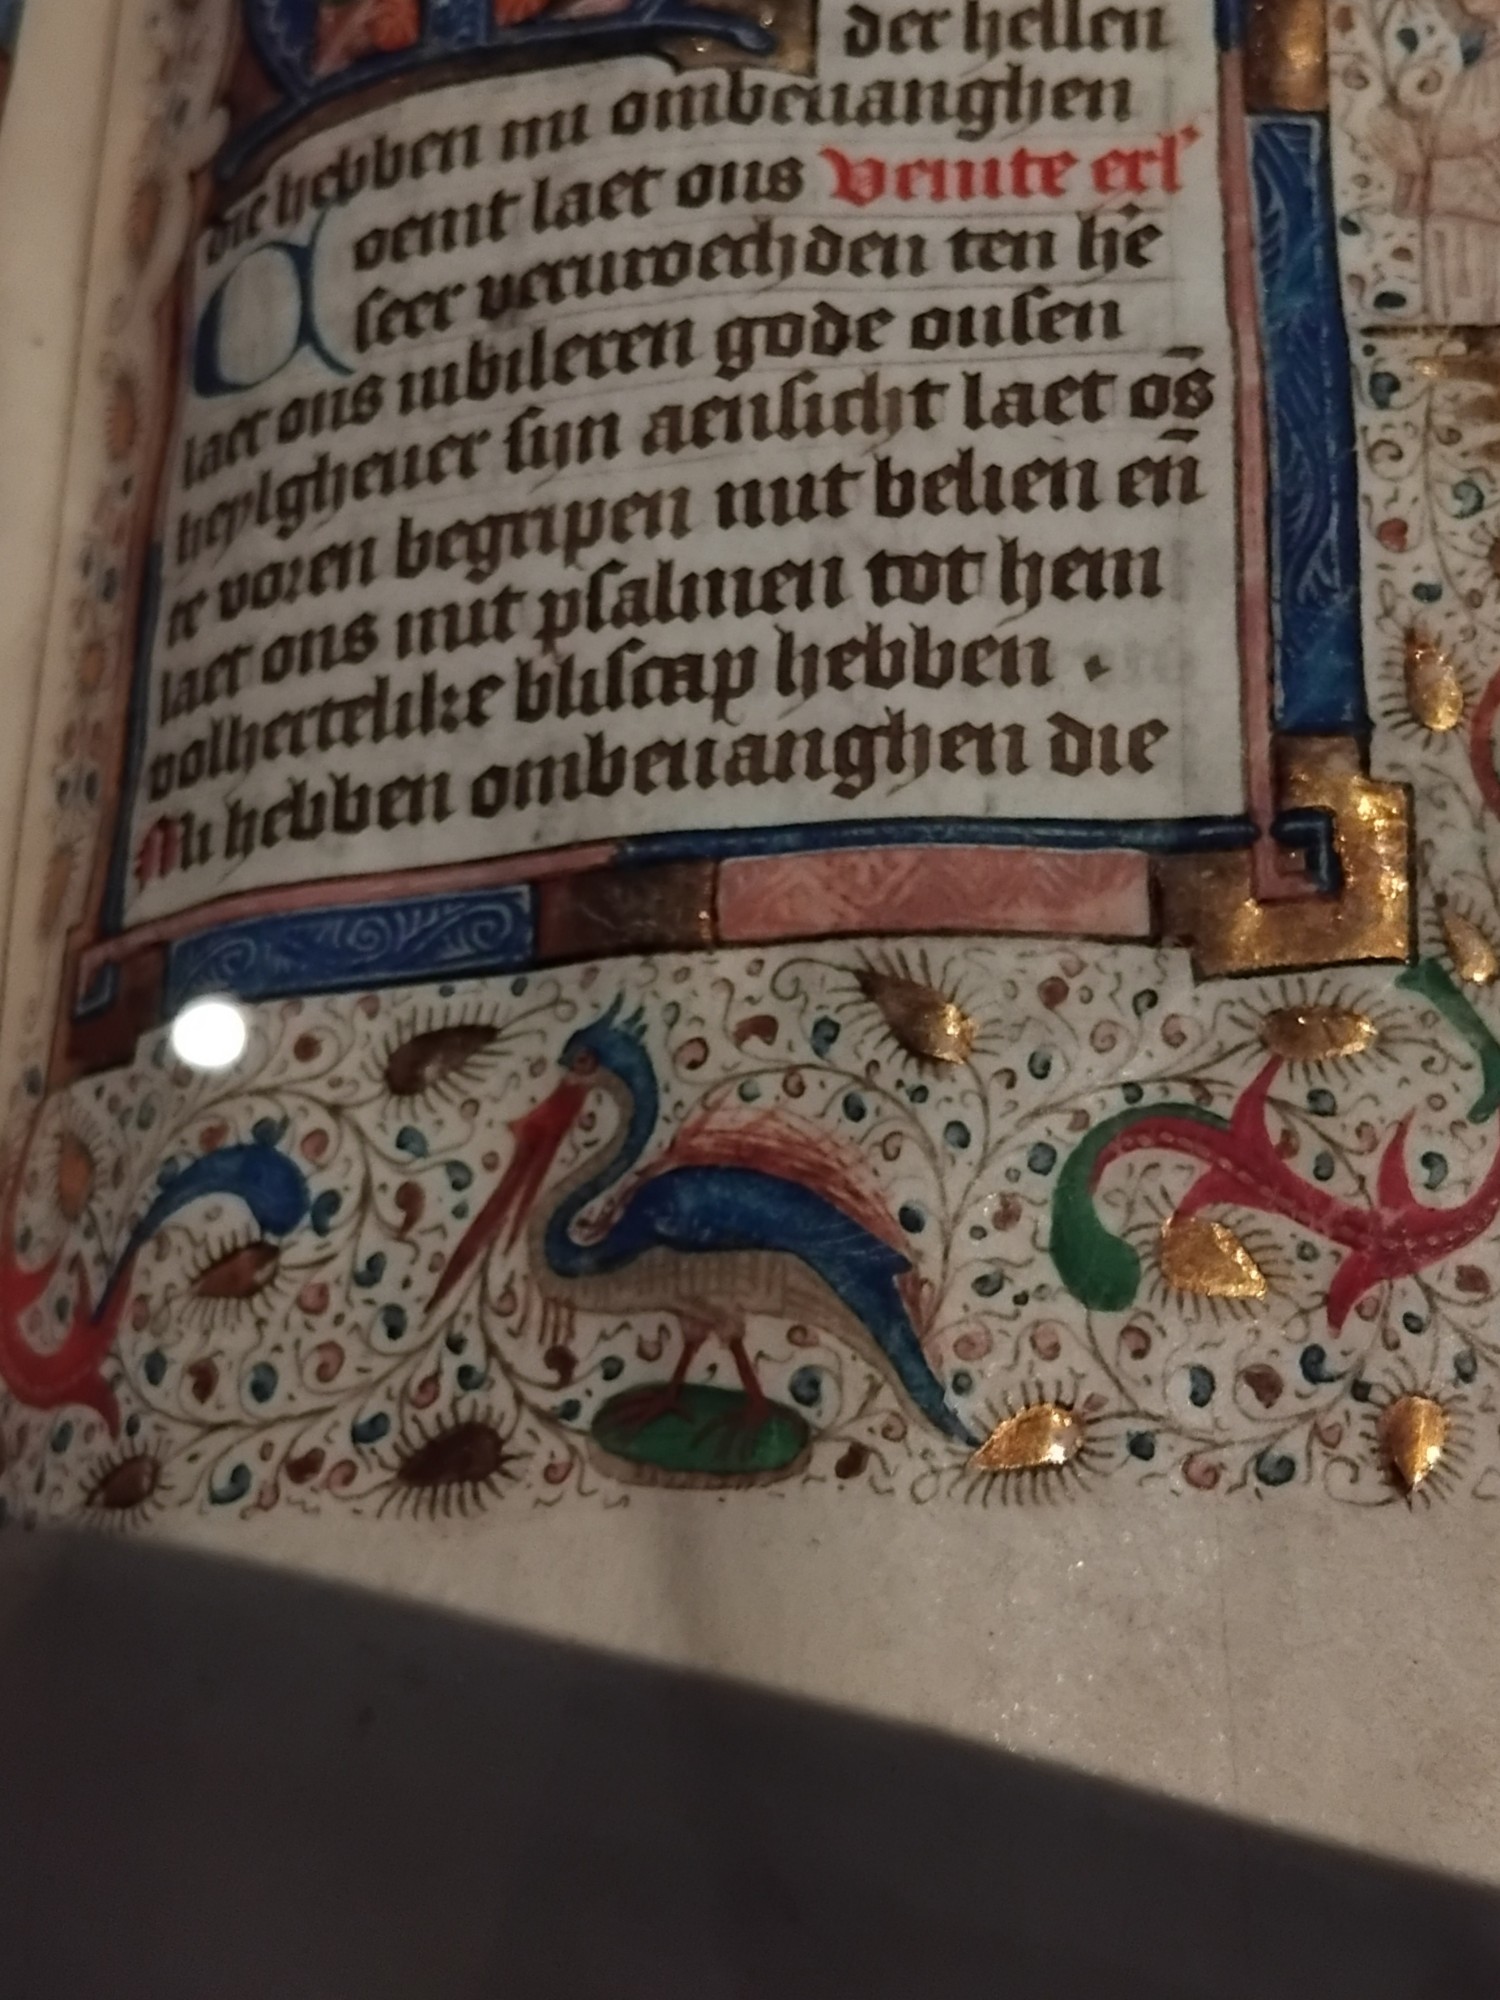 der hellen
die hebben mi ombeuanghen
Coemt laet ons Venite exl'
seer veruroechden ten hē
laet ons iubileren gode onsen
heylgheuer sijn aensicht laet ōs
te voren begripen mit belien eñ
laet ons mit psalmen tot hem
volhertelike bliscap hebben .
Mi hebben ombeuanghen die